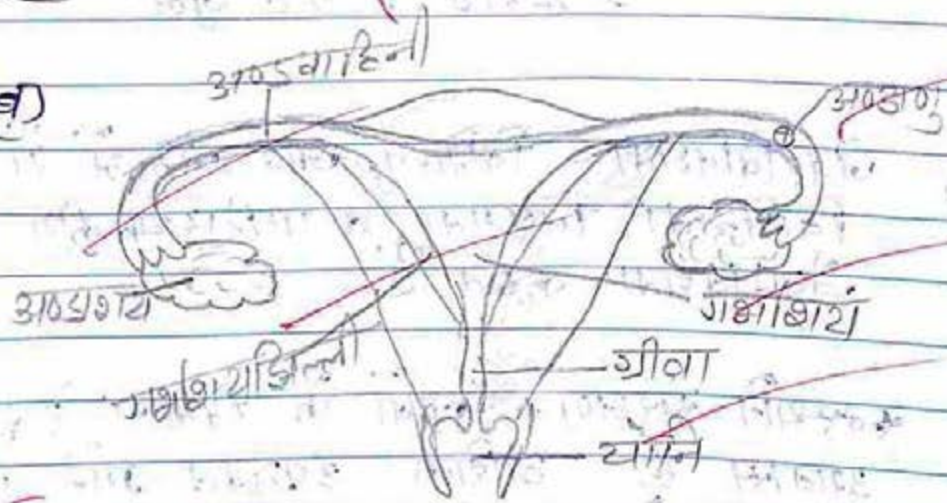 ब)
अण्डवाहिनी
अण्डाणु
अण्डाशय
गर्भाशय
गर्भाशयझिल्ली
ग्रीवा
योनि